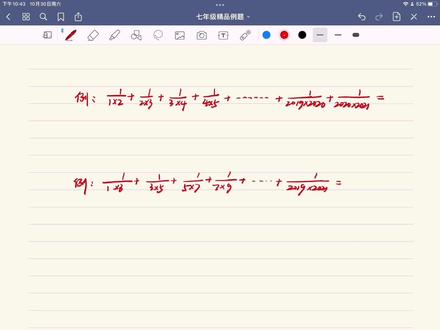 下午10:43 10月30日周六
52%
七年级精品例题
例: 1/1×2 + 1/2×3 + 1/3×4 + 1/4×5 + ······· + 1/2019×2020 + 1/2020×2021 =
例: 1/1×3 + 1/3×5 + 1/5×7 + 1/7×9 + ····· + 1/2019×2021 =